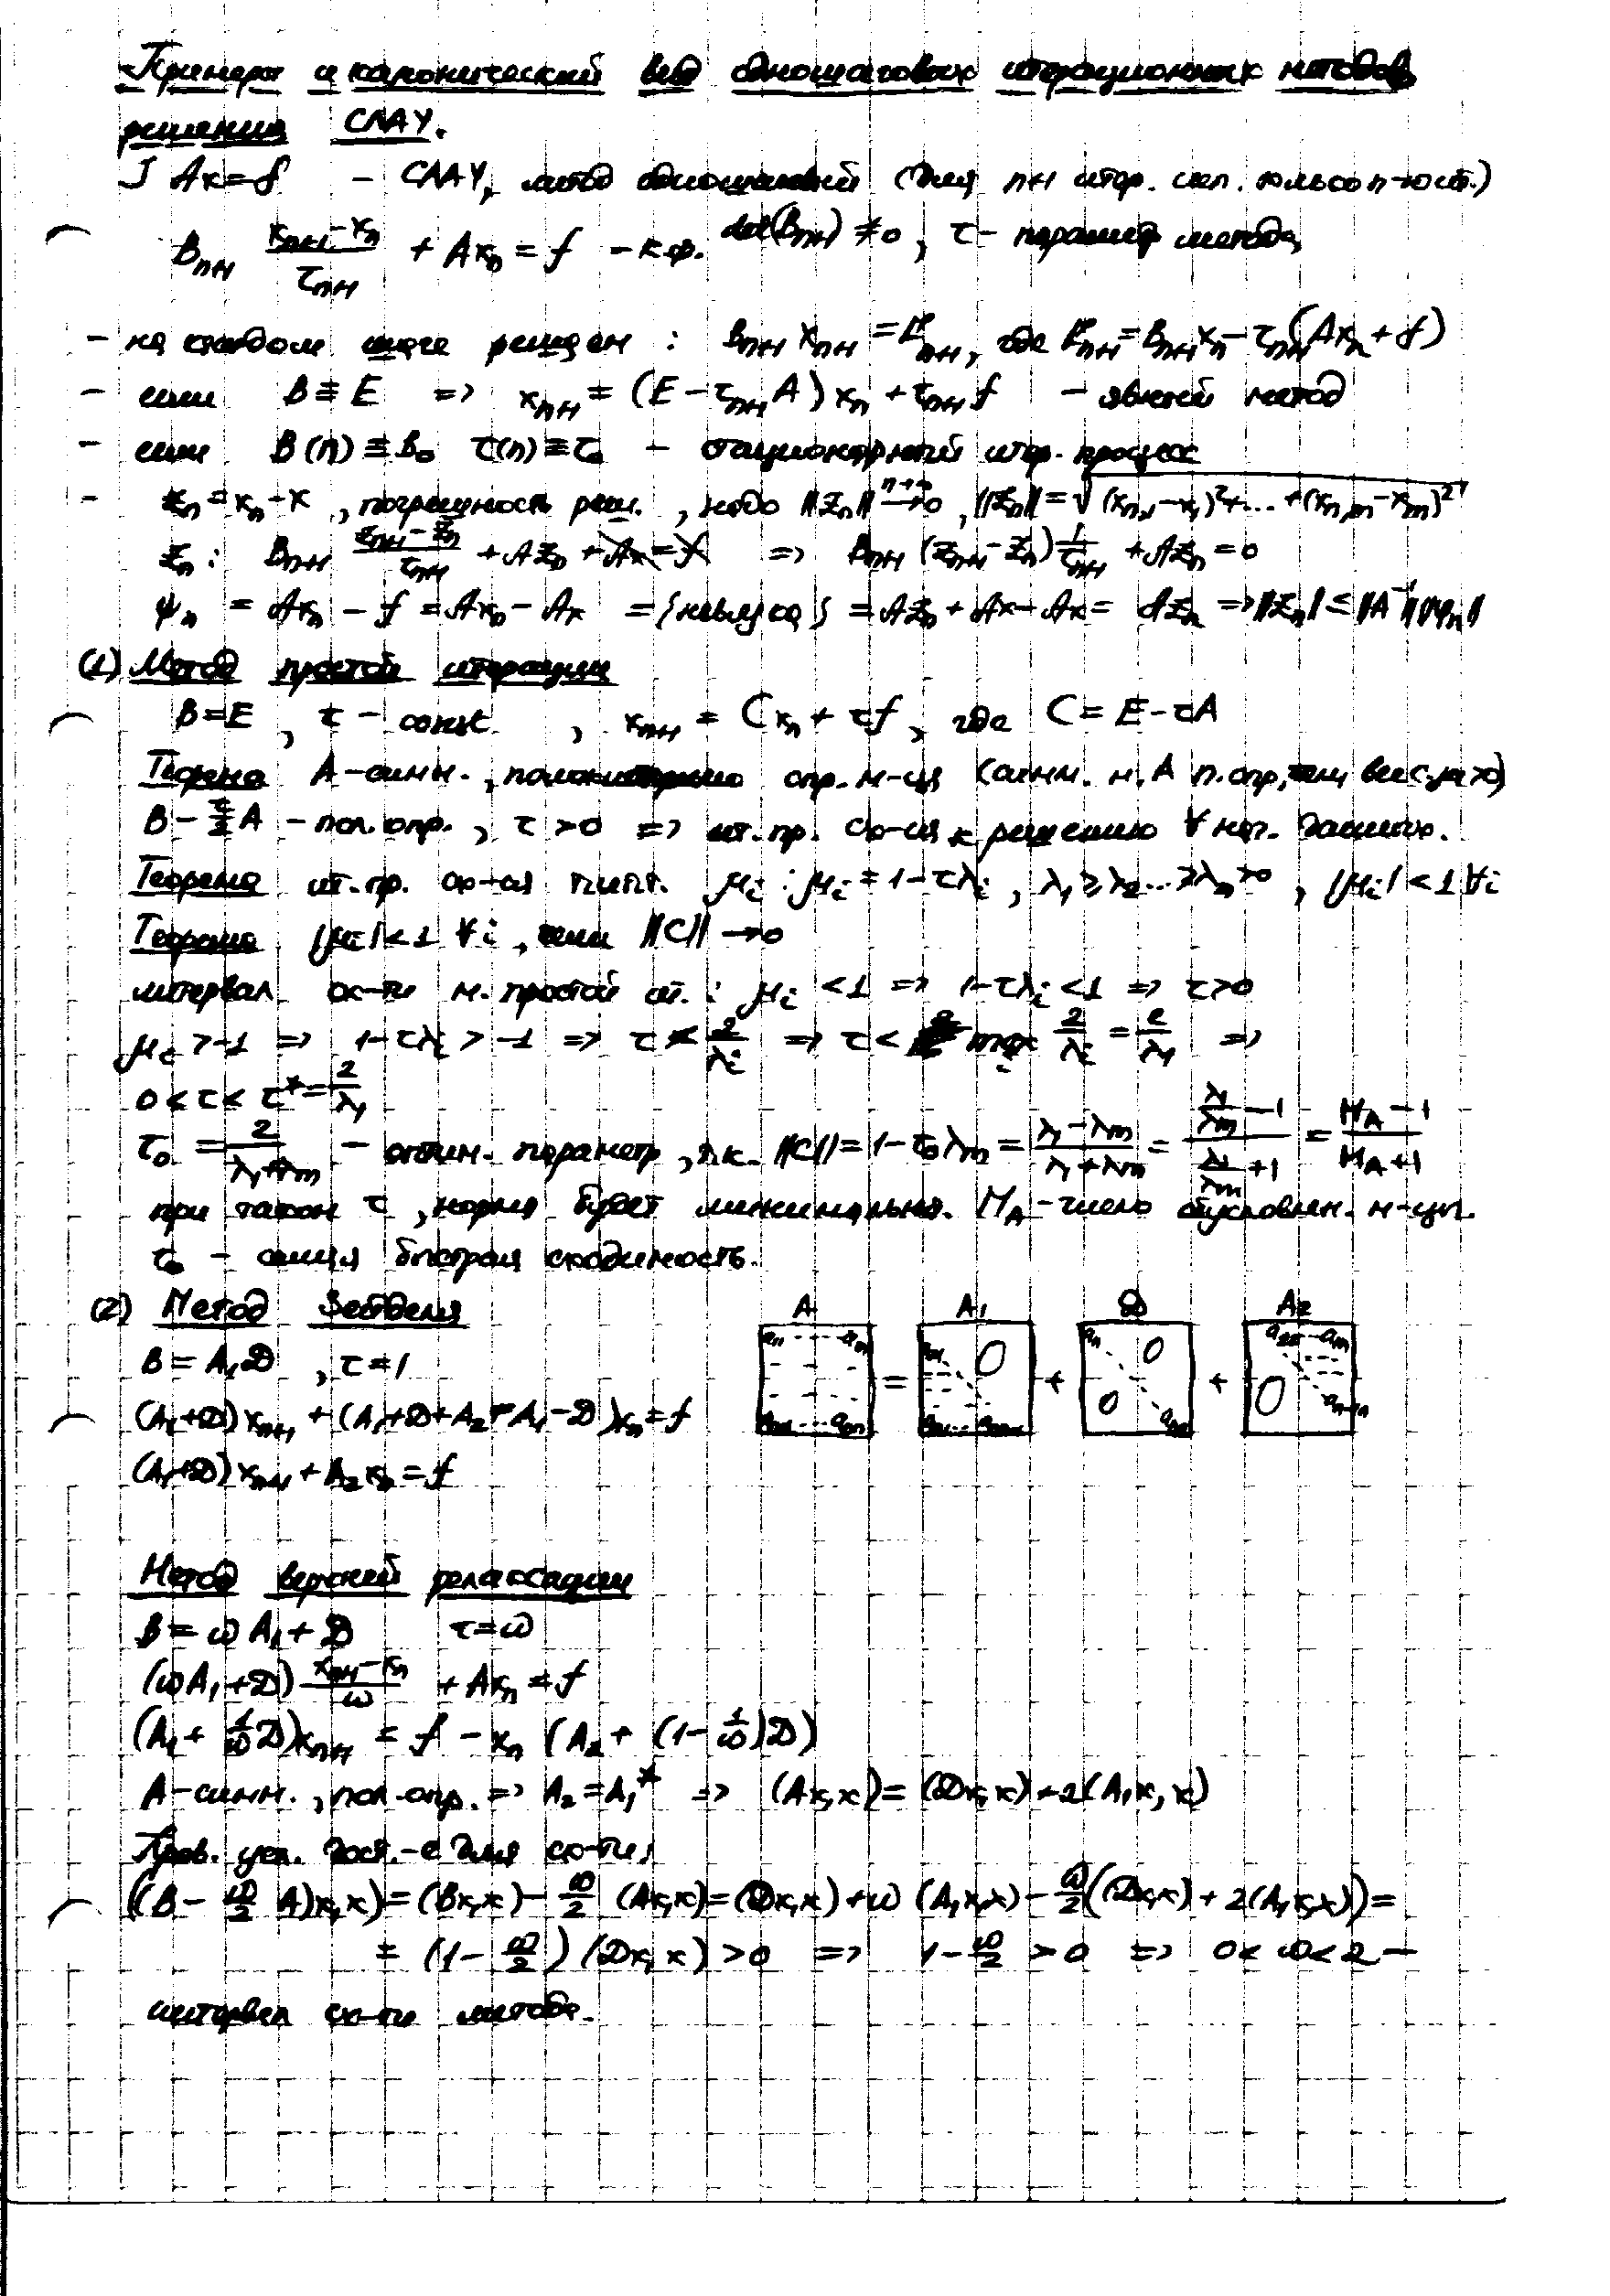 Примеры и канонический вид одношаговых итерационных методов
решения СЛАУ.
] Ax = f – СЛАУ, метод одношаговый (для n+1 итер. исп. только n-ю ит.)
B_{n+1} (x_{n+1} - x_n)/τ_{n+1} + Ax_n = f – к.ф. det(B_{n+1}) ≠ 0, τ – параметр метода
– на каждом шаге решаем : B_{n+1} x_{n+1} = F_{n+1}, где F_{n+1} = B_{n+1} x_n - τ_{n+1}(Ax_n + f)
– если B ≡ E => x_{n+1} = (E - τ_{n+1} A) x_n + τ_{n+1} f – явный метод
– если B(n) ≡ B_0 τ(n) ≡ τ_0 – стационарный итер. процесс
– z_n = x_n - x, погрешность реш., надо ||z_n|| →^{n→∞} 0, ||z_n|| = √((x_{n,1} - x_1)² + ... + (x_{n,m} - x_m)²)
z_n : B_{n+1} (z_{n+1} - z_n)/τ_{n+1} + Az_n + Ax = f => B_{n+1} (z_{n+1} - z_n) 1/τ_{n+1} + Az_n = 0
ψ_n = Ax_n - f = Ax_n - Ax = {невязка} = Az_n + Ax - Ax = Az_n => ||z_n|| ≤ ||A^{-1}|| ||ψ_n||
(1) Метод простой итерации
B = E, τ – const, x_{n+1} = Cx_n + τf, где C = E - τA
Теорема A – симм., положительно опр. м-ца (симм. м. A п. опр, если все с.зн. >0)
B - τ/2 A – пол. опр., τ > 0 => ит. пр. сх-ся к решению ∀ нач. значению.
Теорема ит. пр. сх-ся μ_i : μ_i = 1 - τλ_i, λ_1 ≥ λ_2 ... ≥ λ_m > 0, |μ_i| < 1 ∀i
Теорема |μ_i| < 1 ∀i, если ||C|| → 0
интервал сх-ти м. простой ит. : μ_i < 1 => 1 - τλ_i < 1 => τ > 0
μ_i > -1 => 1 - τλ_i > -1 => τ < 2/λ_i => τ < max_i 2/λ_i = 2/λ_1 =>
0 < τ < τ* = 2/λ_1
τ_0 = 2/(λ_1 + λ_m) – оптим. параметр, т.к. ||C|| = 1 - τ_0 λ_m = (λ_1 - λ_m)/(λ_1 + λ_m) = (λ_1/λ_m - 1)/(λ_1/λ_m + 1) = (M_A - 1)/(M_A + 1)
при таком τ, норма будет минимальна. M_A – число обусловлен. м-цы.
τ_0 – самая быстрая сходимость.
(2) Метод Зейделя
A A_1 D A_2
B = A_1 D, τ = 1
(A_1 + D) x_{n+1} + (A_1 + D + A_2 - A_1 - D) x_n = f
(A_1 + D) x_{n+1} + A_2 x_n = f
Метод верхней релаксации
B = ωA_1 + D τ = ω
(ωA_1 + D) (x_{n+1} - x_n)/ω + Ax_n = f
(A_1 + 1/ω D) x_{n+1} = f - x_n (A_2 + (1 - 1/ω) D)
A – симм., пол. опр. => A_2 = A_1* => (Ax, x) = (Dx, x) + 2(A_1 x, x)
Пров. усл. дост.-е для сх-ти;
((B - ω/2 A)x, x) = (Bx, x) - ω/2 (Ax, x) = (Dx, x) + ω (A_1 x, x) - ω/2 ((Dx, x) + 2(A_1 x, x)) =
= (1 - ω/2) (Dx, x) > 0 => 1 - ω/2 > 0 => 0 < ω < 2 –
интервал сх-ти метода.